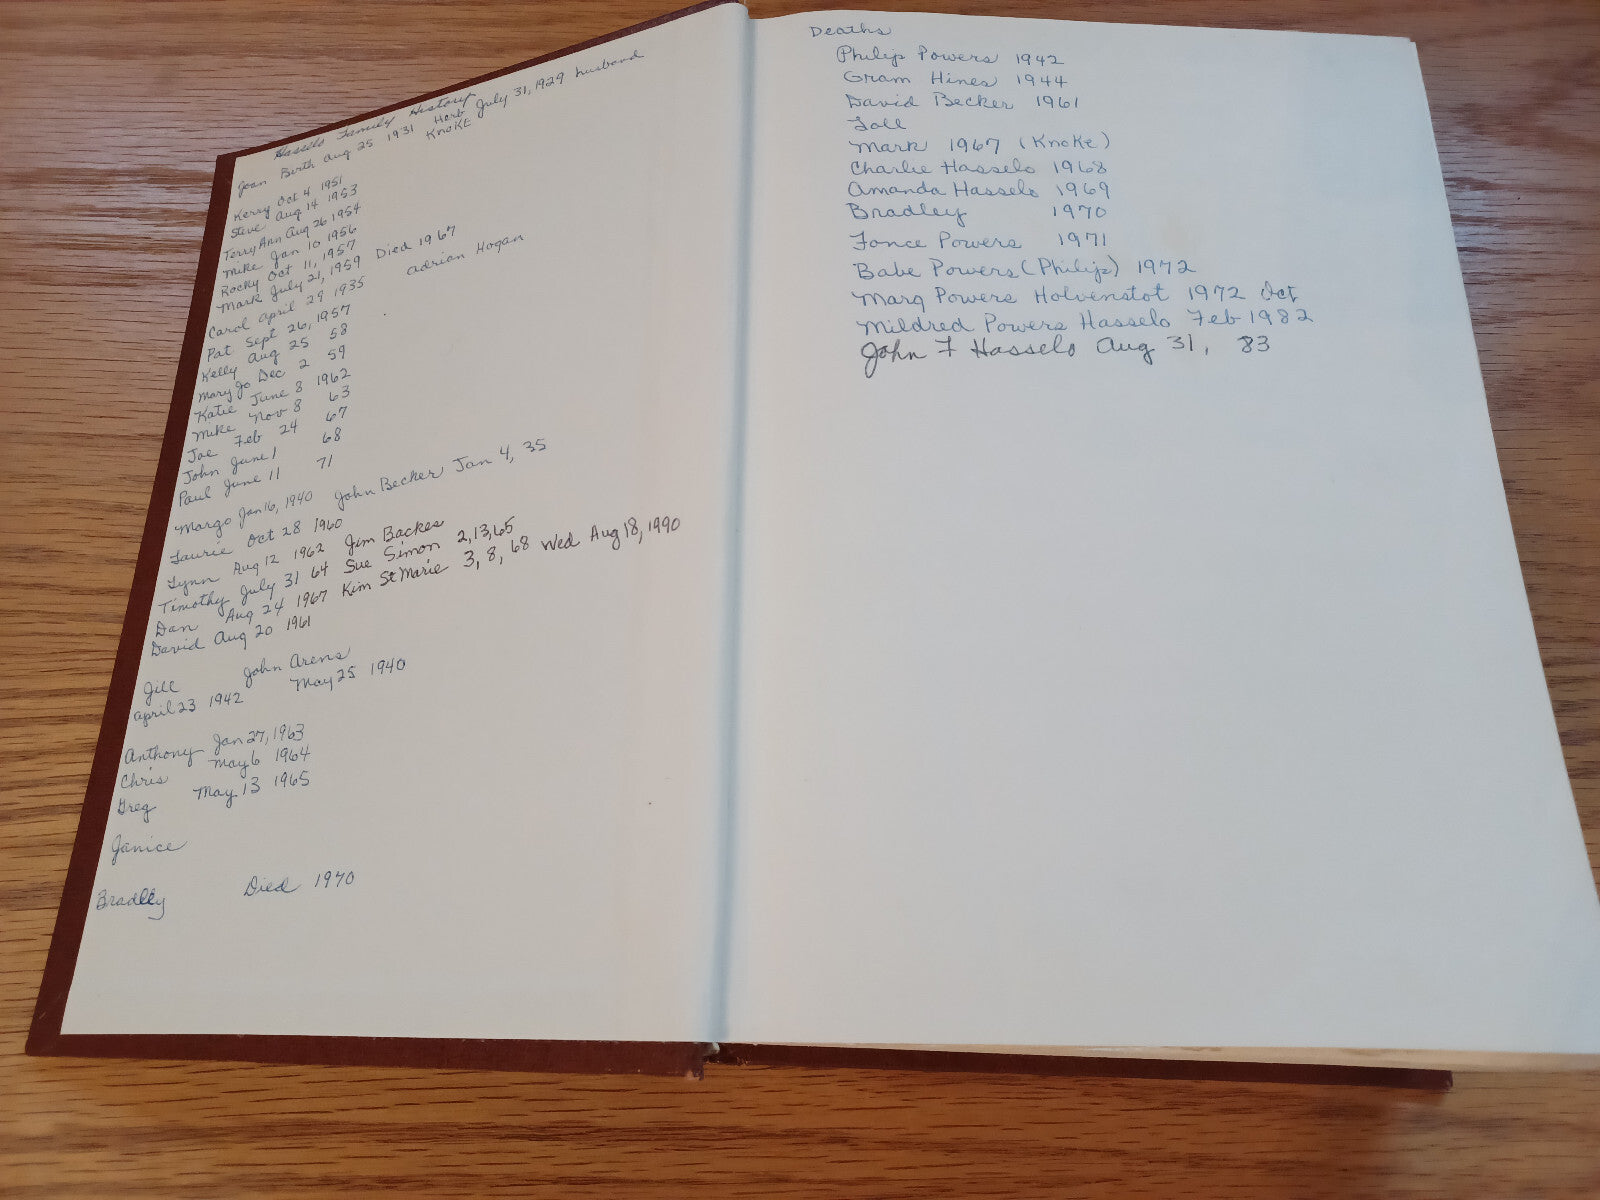 Hasselo Family History
Joan Birth Aug 25 1931 Herb July 31, 1929 husband
Knoke
Kerry Oct 4 1951
Steve Aug 14 1953
Terry Ann Aug 26 1954
Mike Jan 10 1956
Rocky Oct 11, 1957
Mark July 21, 1959 Died 1967
Carol April 29 1935 Adrian Hogan
Pat Sept 26, 1957
Kelly Aug 25 58
Mary Jo Dec 2 59
Katie June 8 1962
Mike Nov 8 63
Joe Feb 24 67
John June 1 68
Paul June 11 71
Margo Jan 16, 1940 John Becker Jan 4, 35
Laurie Oct 28 1960
Lynn Aug 12 1962 Jim Backes
Timothy July 31 64 Sue Simon 2, 13, 65
Dan Aug 24 1967 Kim St Marie 3, 8, 68 Wed Aug 18, 1990
David Aug 20 1961
Jill John Arens
April 23 1942 May 25 1940
Anthony Jan 27, 1963
Chris May 6 1964
Greg May 13 1965
Janice
Bradley Died 1970
Deaths
Philip Powers 1942
Gram Hines 1944
David Becker 1961
Mark 1967 (Knoke)
Charlie Hasselo 1968
Amanda Hasselo 1969
Bradley 1970
Fonce Powers 1971
Babe Powers (Philip) 1972
Marg Powers Holvenstot 1972 Oct
Mildred Powers Hasselo Feb 1982
John F Hasselo Aug 31, 83